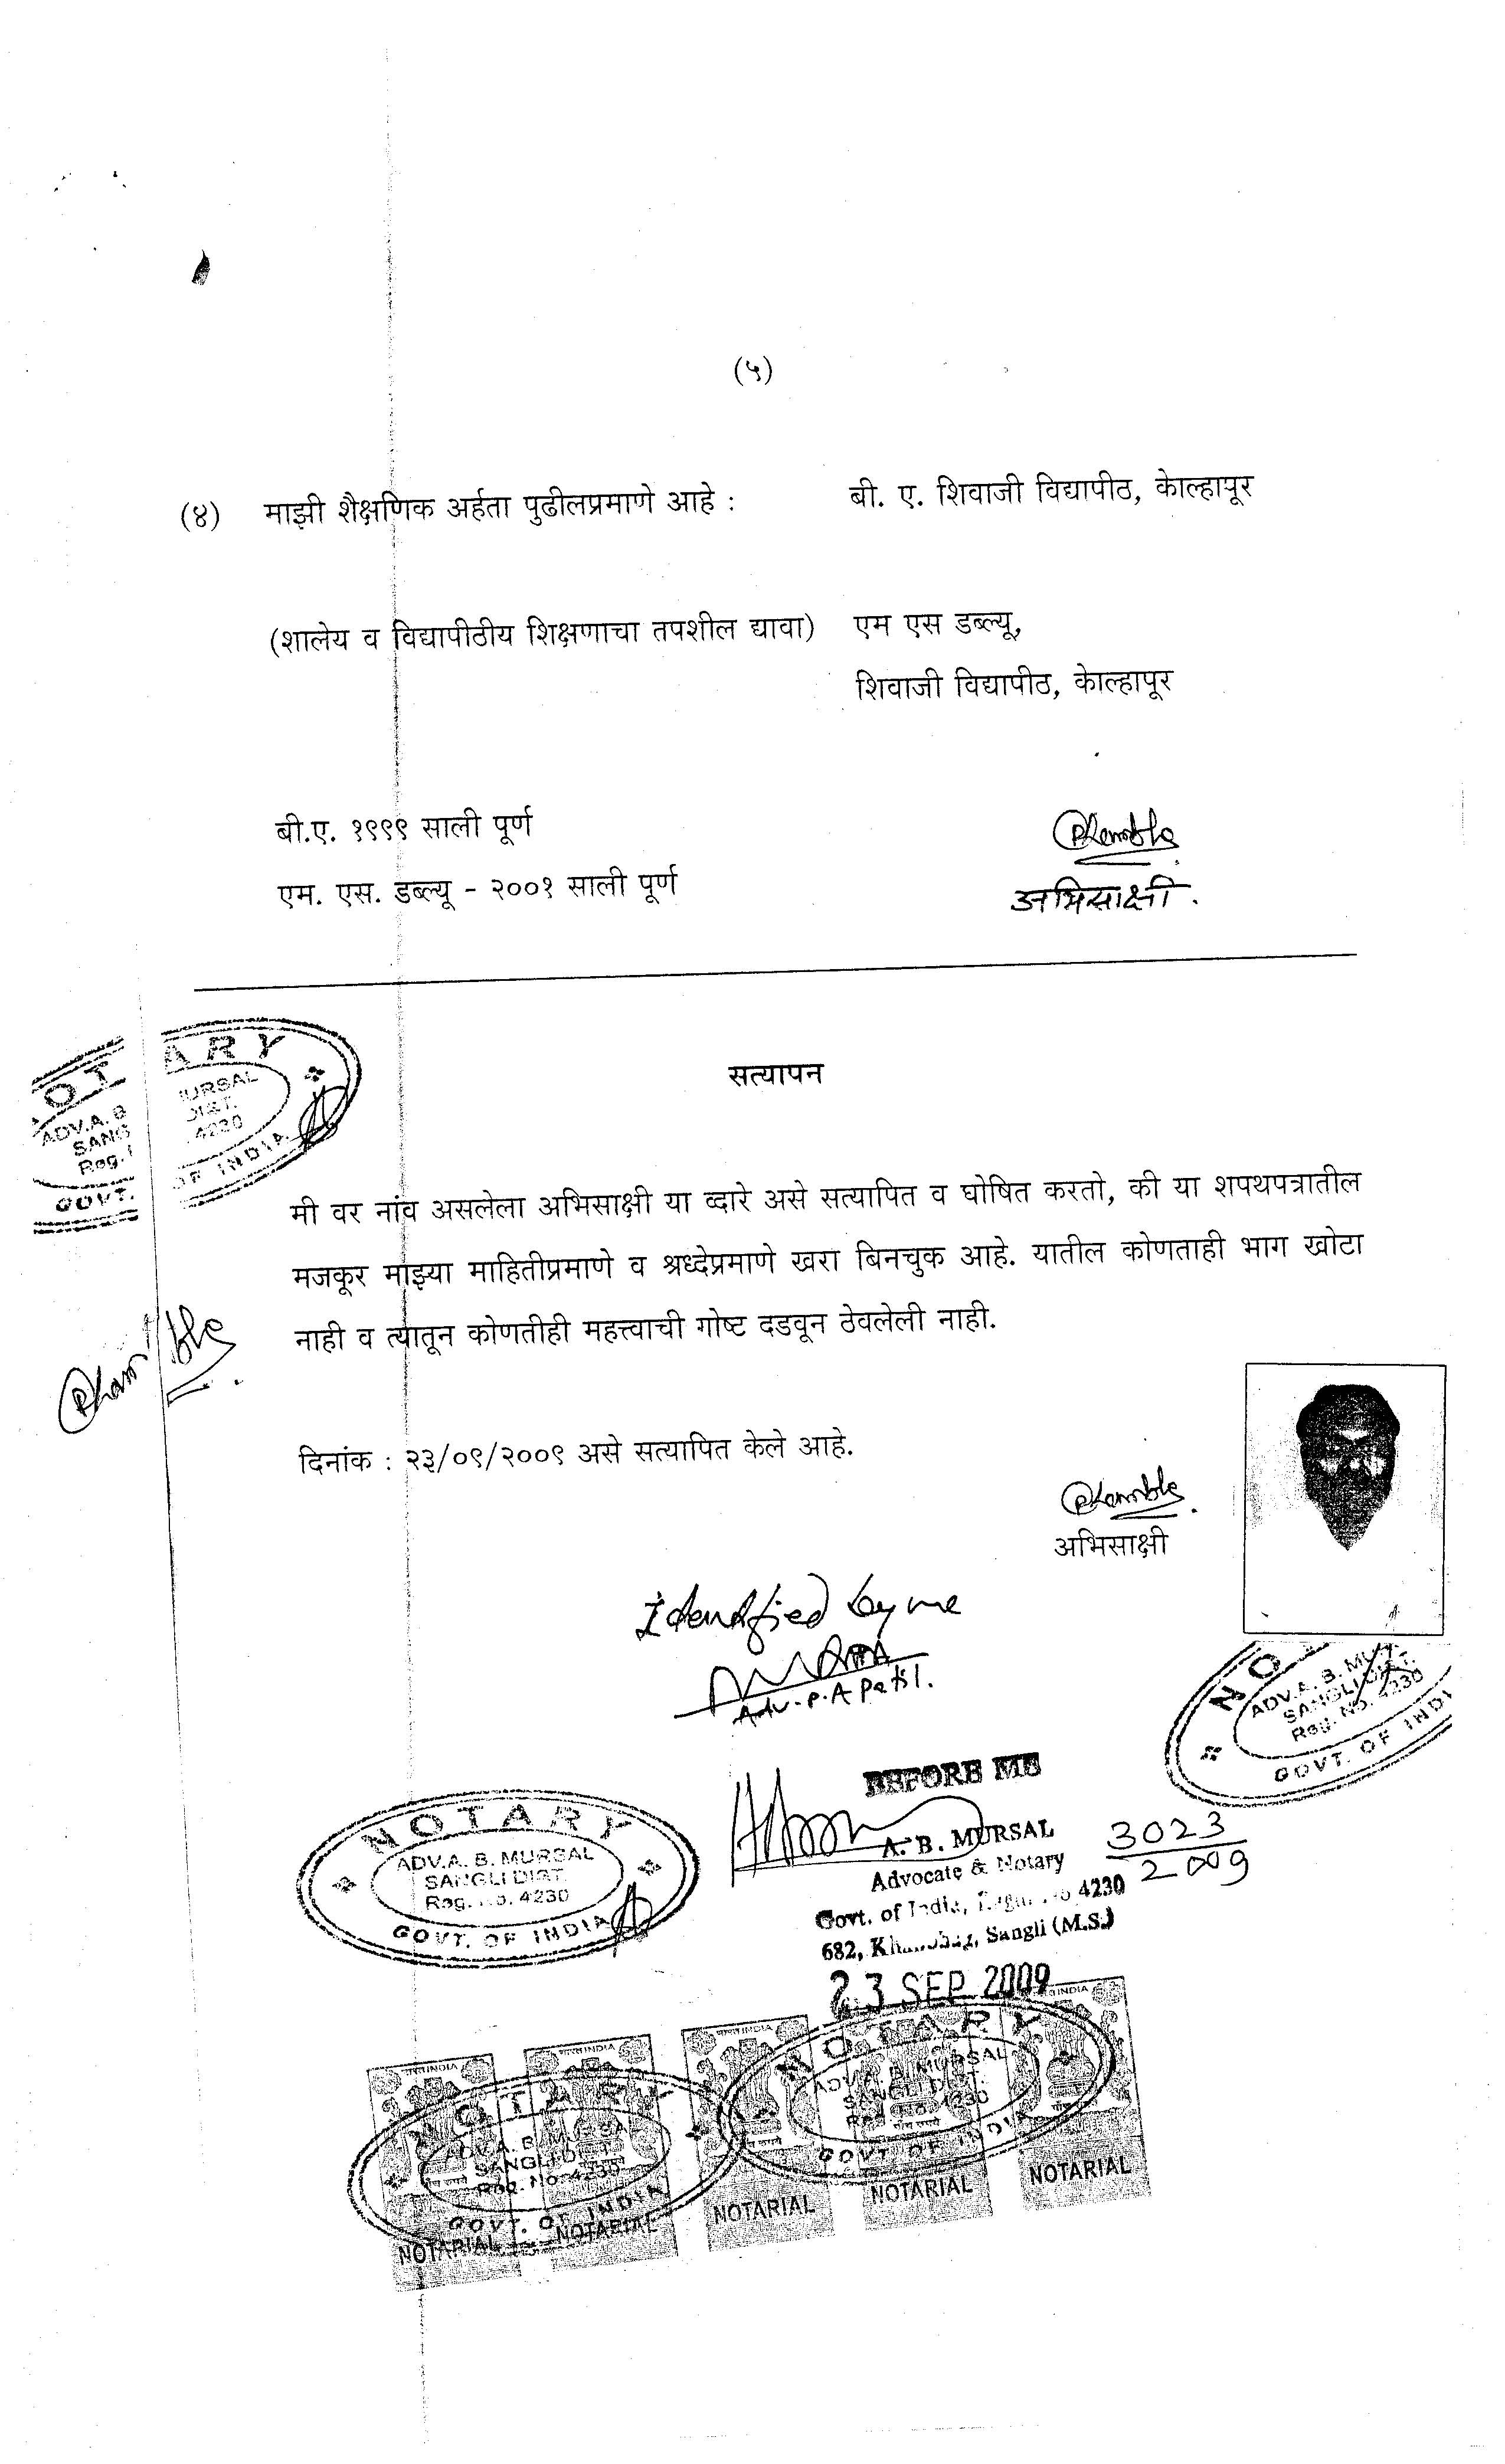 (५)
(४) माझी शैक्षणिक अर्हता पुढीलप्रमाणे आहे : बी. ए. शिवाजी विद्यापीठ, कोल्हापूर
(शालेय व विद्यापीठीय शिक्षणाचा तपशील द्यावा) एम एस डब्ल्यू,
शिवाजी विद्यापीठ, कोल्हापूर
बी.ए. १९९९ साली पूर्ण
एम. एस. डब्ल्यू - २००१ साली पूर्ण
अभिसाक्षी.
OT ARY
ADV.A. B MURSAL
SANG DIST.
Reg. 4230
GOVT. OF INDIA
सत्यापन
मी वर नांव असलेला अभिसाक्षी या व्दारे असे सत्यापित व घोषित करतो, की या शपथपत्रातील
मजकूर माझ्या माहितीप्रमाणे व श्रध्देप्रमाणे खरा बिनचुक आहे. यातील कोणताही भाग खोटा
नाही व त्यातून कोणतीही महत्त्वाची गोष्ट दडवून ठेवलेली नाही.
दिनांक : २३/०९/२००९ असे सत्यापित केले आहे.
अभिसाक्षी
Identified by me
Adv. P. A Patil.
NO
ADV.A. B. MU
SANGLI DIST.
Reg. No. 4230
GOVT. OF INDI
BEFORE ME
A. B. MURSAL
Advocate & Notary
Govt. of India, 4230
682, Sangli (M.S.)
3023
2009
23 SEP 2009
NOTARY
ADV.A. B. MURSAL
SANGLI DIST.
Reg. No. 4230
GOVT. OF INDIA
NOTARY
ADV.A. B. MURSAL
SANGLI DIST.
Reg. No. 4230
GOVT. OF INDIA
NOTARY
ADV.A. B. MURSAL
SANGLI DIST.
Reg. No. 4230
GOVT. OF INDIA
NOTARIAL
NOTARIAL
NOTARIAL
NOTARIAL
NOTARIAL